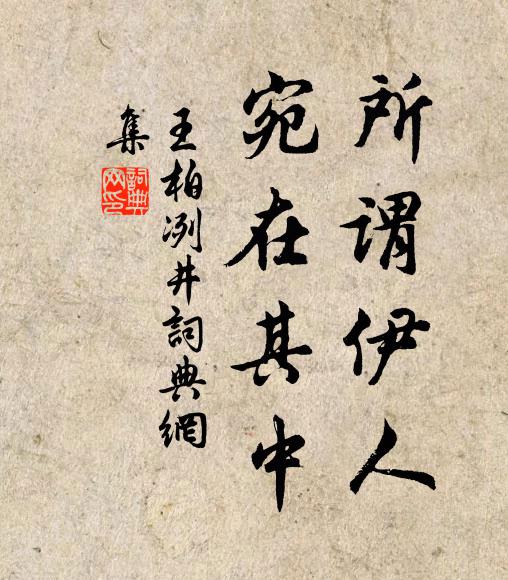 所謂伊人
宛在其中
王柏冽井詞典網
集
詞典
网印